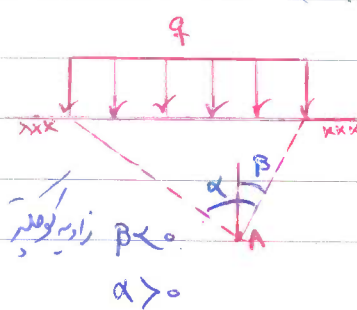 q
xxx xxx
α β
A
زاویه کوچکتر
β < 0
α > 0